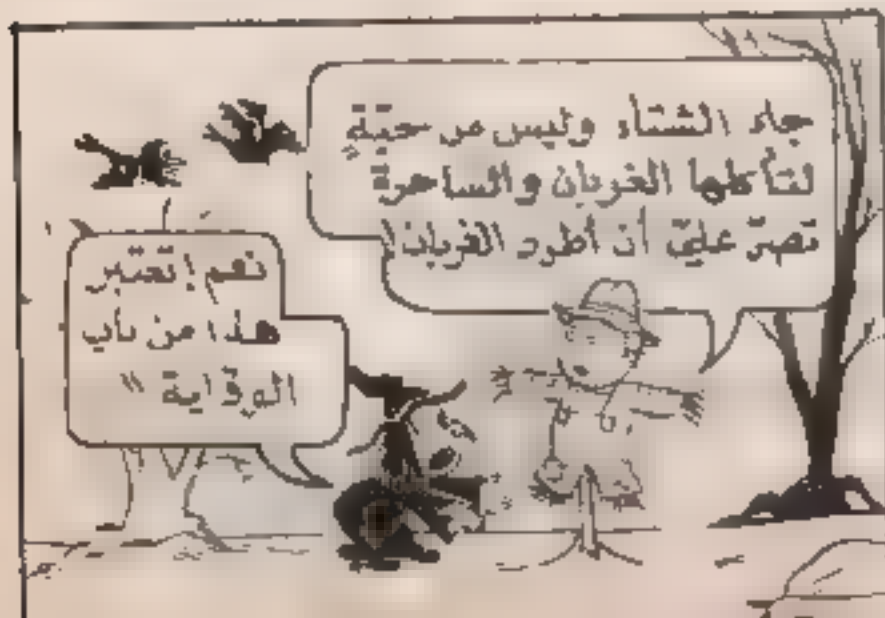 جاء الشتاء وليس من حبّةٍ
لتأكلها الغربان والساحرة
تصرّ عليّ أن أطرد الغربان!
نعم إعتبر
هذا من باب
الوقاية "